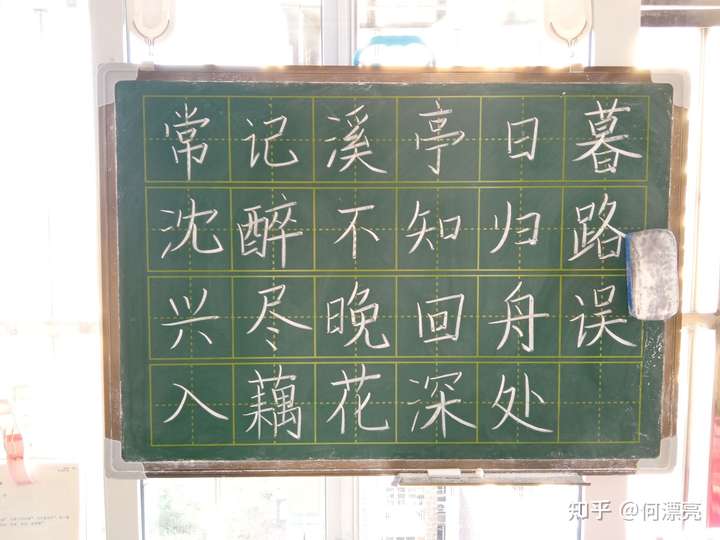 常记溪亭日暮
沈醉不知归路
兴尽晚回舟误
入藕花深处
知乎 @何漂亮